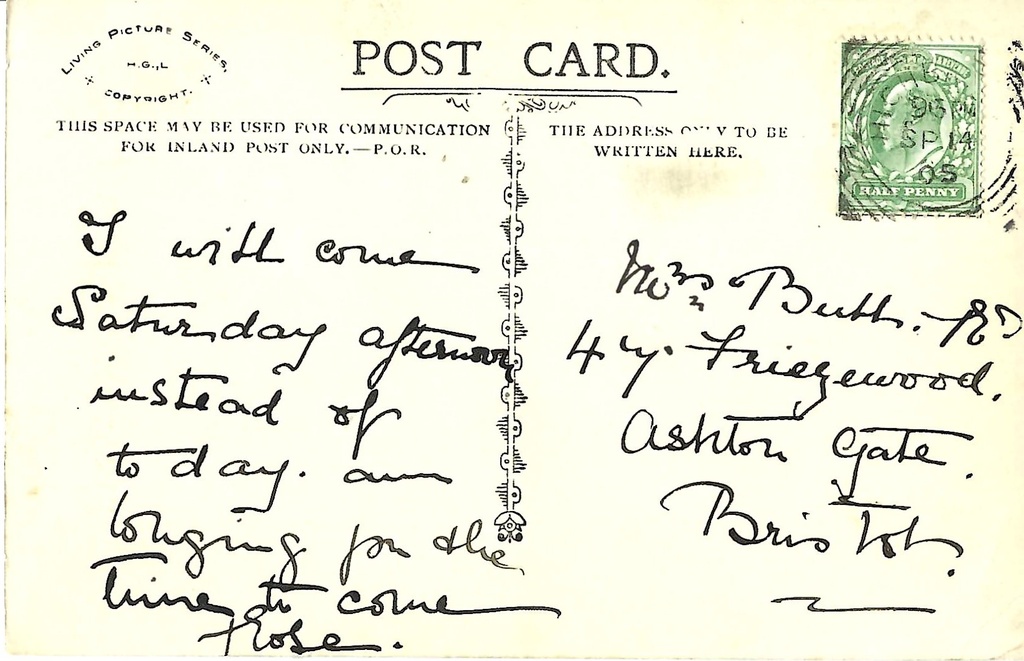 LIVING PICTURE SERIES,
H.G.,L
COPYRIGHT.
POST CARD.
THIS SPACE MAY BE USED FOR COMMUNICATION
FOR INLAND POST ONLY.—P.O.R.
THE ADDRESS ONLY TO BE
WRITTEN HERE.
SP 14
05
HALF PENNY
I will come
Saturday afternoon
instead of
to day. am
longing for the
time to come
Rose.
Mrs Butt.
47. Friezewood. Rd
Ashton Gate.
Bristol.